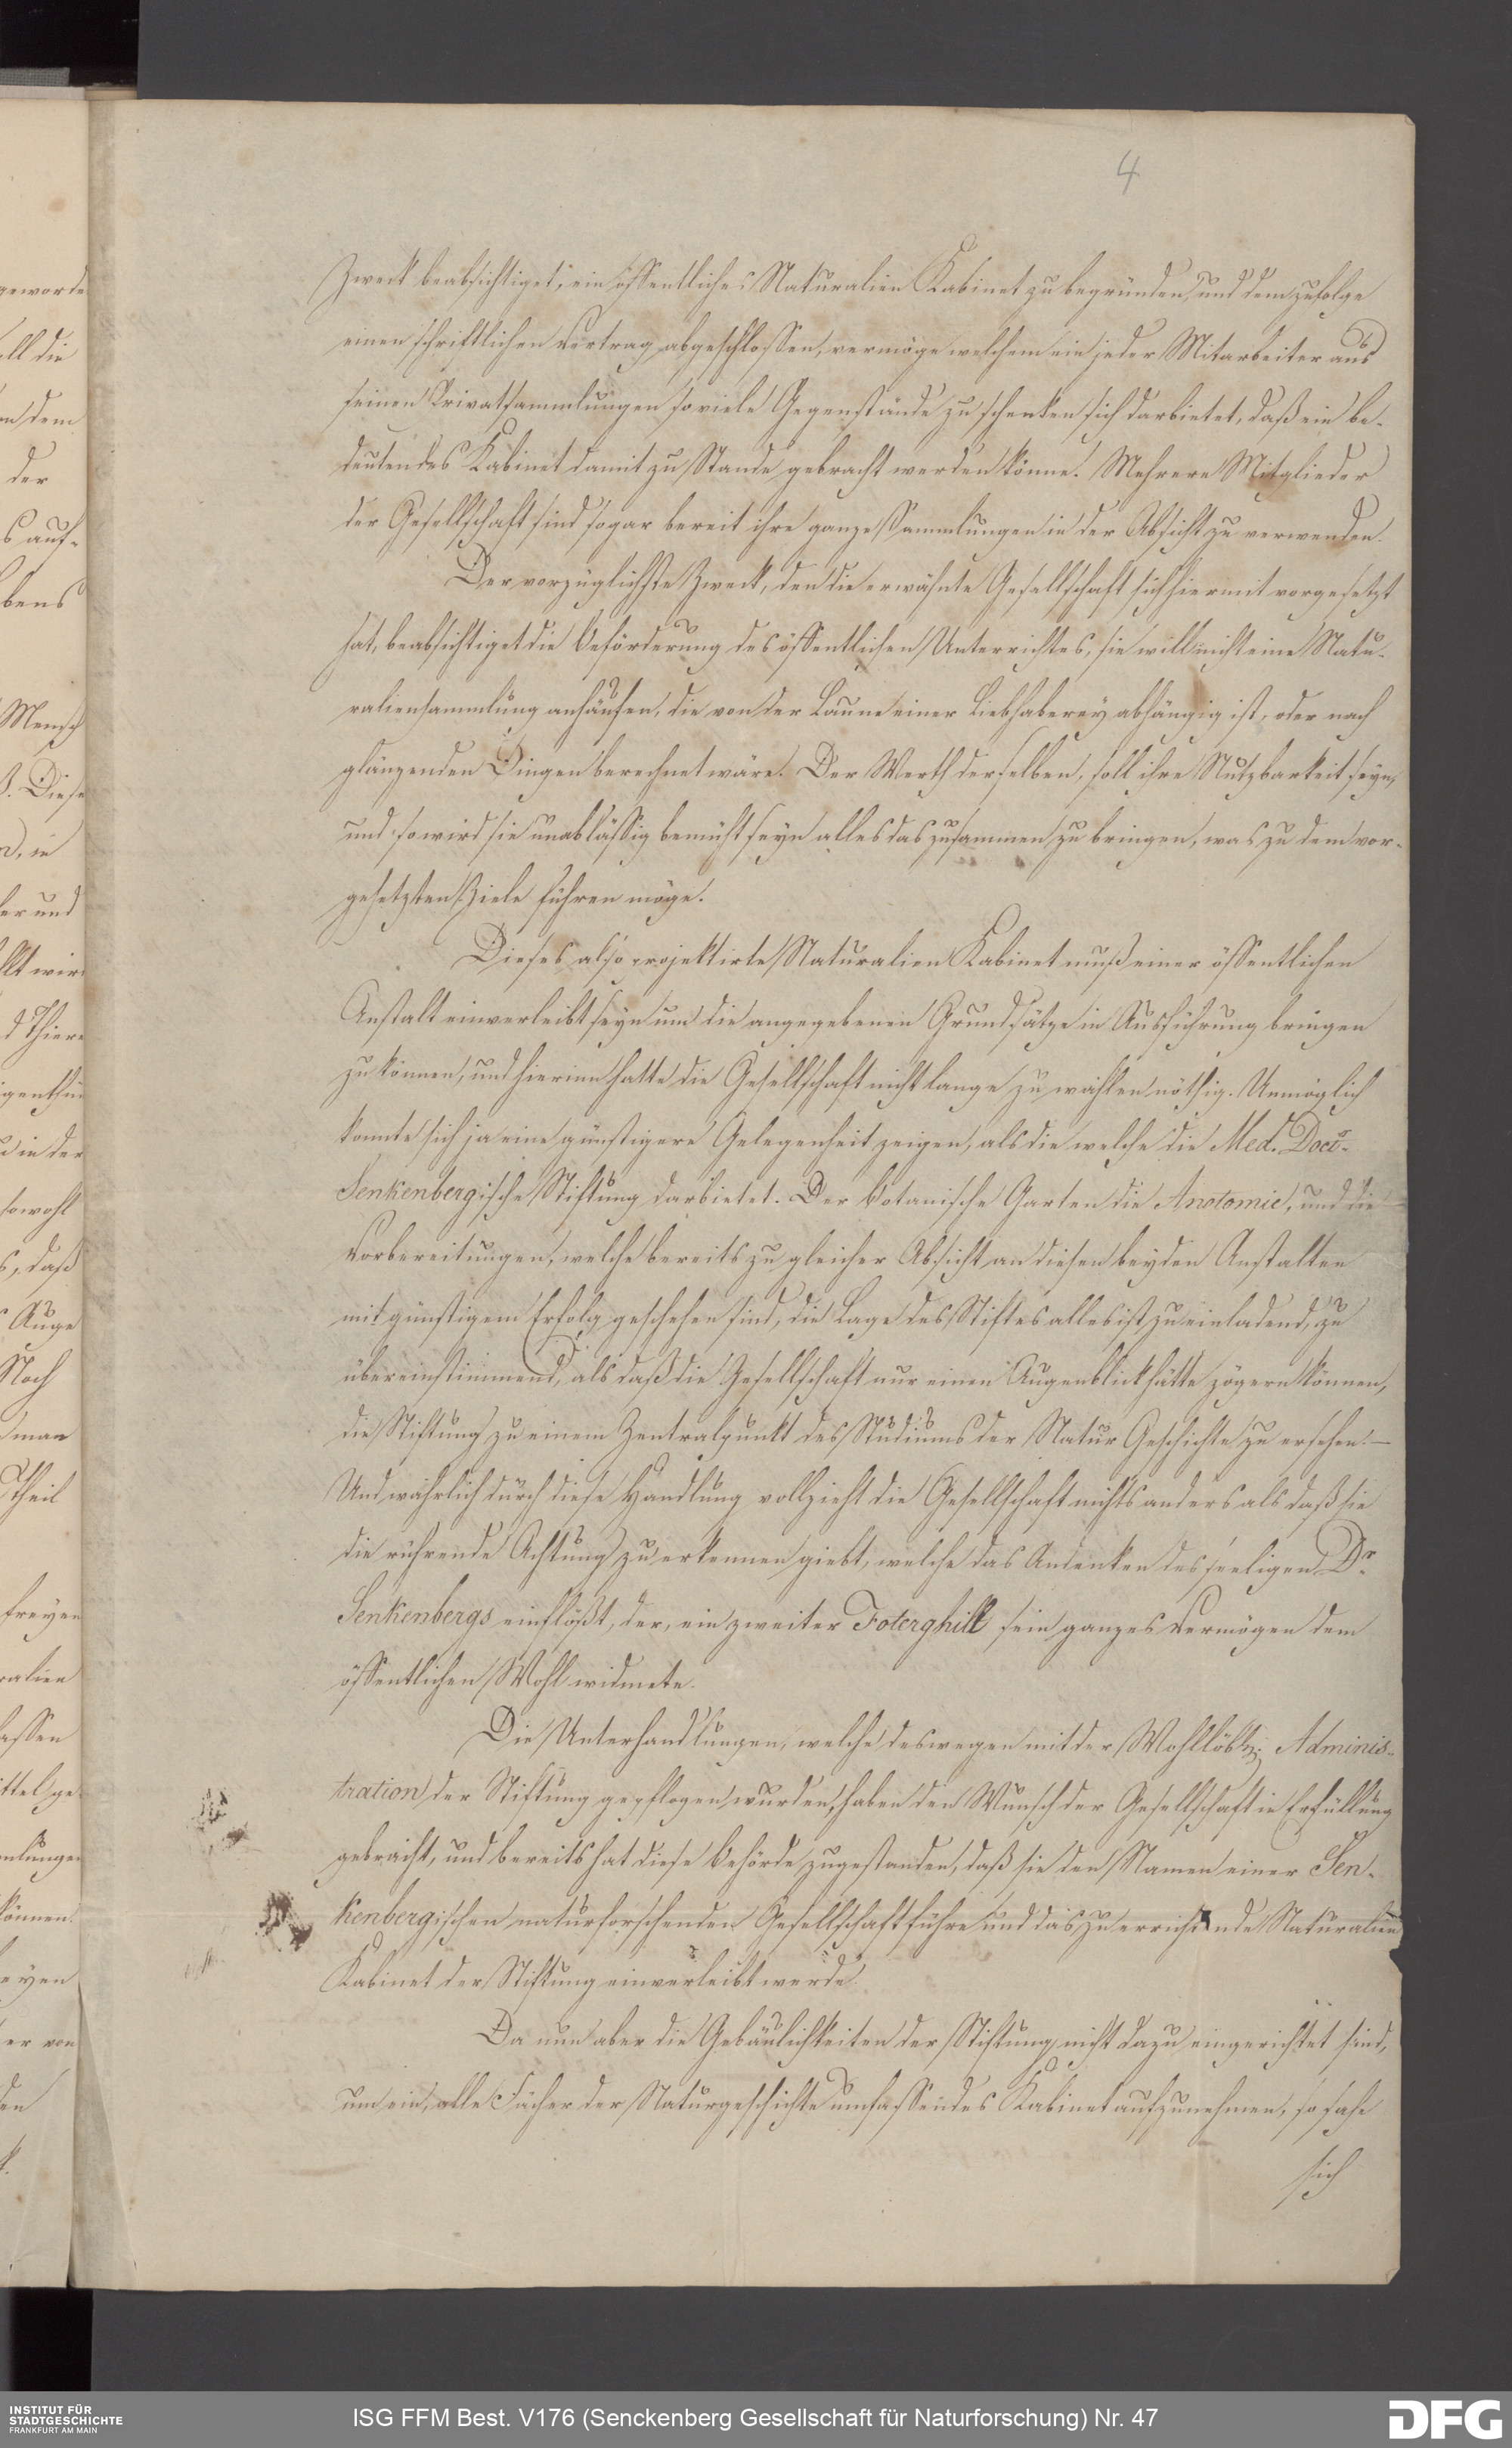 4
Zweck beabsichtiget, ein öffentliches Naturalien Kabinet zu begründen, und dem zufolge
einen schriftlichen Vertrag abgeschlossen, vermöge welchem ein jeder Mitarbeiter aus
seinen Privatsammlungen so viele Gegenstände zu schenken sich darbietet, daß ein be-
deutendes Kabinet damit zu Stande gebracht werden könne. Mehrere Mitglieder
der Gesellschaft sind sogar bereit ihre ganze Sammlungen in der Absicht zu verwenden.
Der vorzüglichste Zweck, den die erwähnte Gesellschaft sich hiermit vorgesetzt
hat, beabsichtiget die Beförderung des öffentlichen Unterrichtes, sie will nicht eine Natu-
raliensammlung anhäufen, die von der Laune einer Liebhaberey abhängig ist, oder nach
glänzenden Dingen berechnet wäre. Der Werth derselben, soll ihre Nutzbarkeit seyn,
und so wird sie unablässig bemüht seyn alles das zusammen zu bringen, was zu dem vor-
gesetzten Ziele führen möge.
Dieses also projektirte Naturalien Kabinet muß einer öffentlichen
Anstalt einverleibt seyn um die angegebenen Grundsätze in Ausführung bringen
zu können, und hierinn hatte die Gesellschaft nicht lange zu wählen nöthig. Unmöglich
konnte sich ja eine günstigere Gelegenheit zeigen, als die welche die Med. Doct.
Senkenbergische Stiftung darbietet. Der botanische Garten die Anotomie, und die
Vorbereitungen, welche bereits zu gleicher Absicht an diesen beyden Anstalten
mit günstigem Erfolg geschehen sind, die Lage des Stiftes alles ist zu einladend, zu
übereinstimmend, als daß die Gesellschaft nur einen Augenblick hätte zögern können,
die Stiftung zu einem Zentralpunkt des Studiums der Natur Geschichte zu ersehen. —
Und wahrlich durch diese Handlung vollzieht die Gesellschaft nichts anders als daß sie
die rührende Achtung zu erkennen giebt, welche das Andenken des seeligen Dr.
Senkenbergs einflößt, der, ein zweiter Foterghill sein ganzes Vermögen dem
öffentlichen Wohl widmete.
Die Unterhandlungen, welche deswegen mit der Wohllöbl. Adminis-
tration der Stiftung gepflogen wurden, haben den Wunsch der Gesellschaft in Erfüllung
gebracht, und bereits hat diese Behörde zugestanden, daß sie den Namen einer Sen-
kenbergischen naturforschenden Gesellschaft führe und das zu errichtende Naturalien
Kabinet der Stiftung einverleibt werde.
Da nun aber die Gebäulichkeiten der Stiftung nicht dazu eingerichtet sind,
um ein, alle Fächer der Naturgeschichte umfassendes Kabinet aufzunehmen, so sahe
sich
INSTITUT FÜR
STADTGESCHICHTE
FRANKFURT AM MAIN
ISG FFM Best. V176 (Senckenberg Gesellschaft für Naturforschung) Nr. 47
DFG